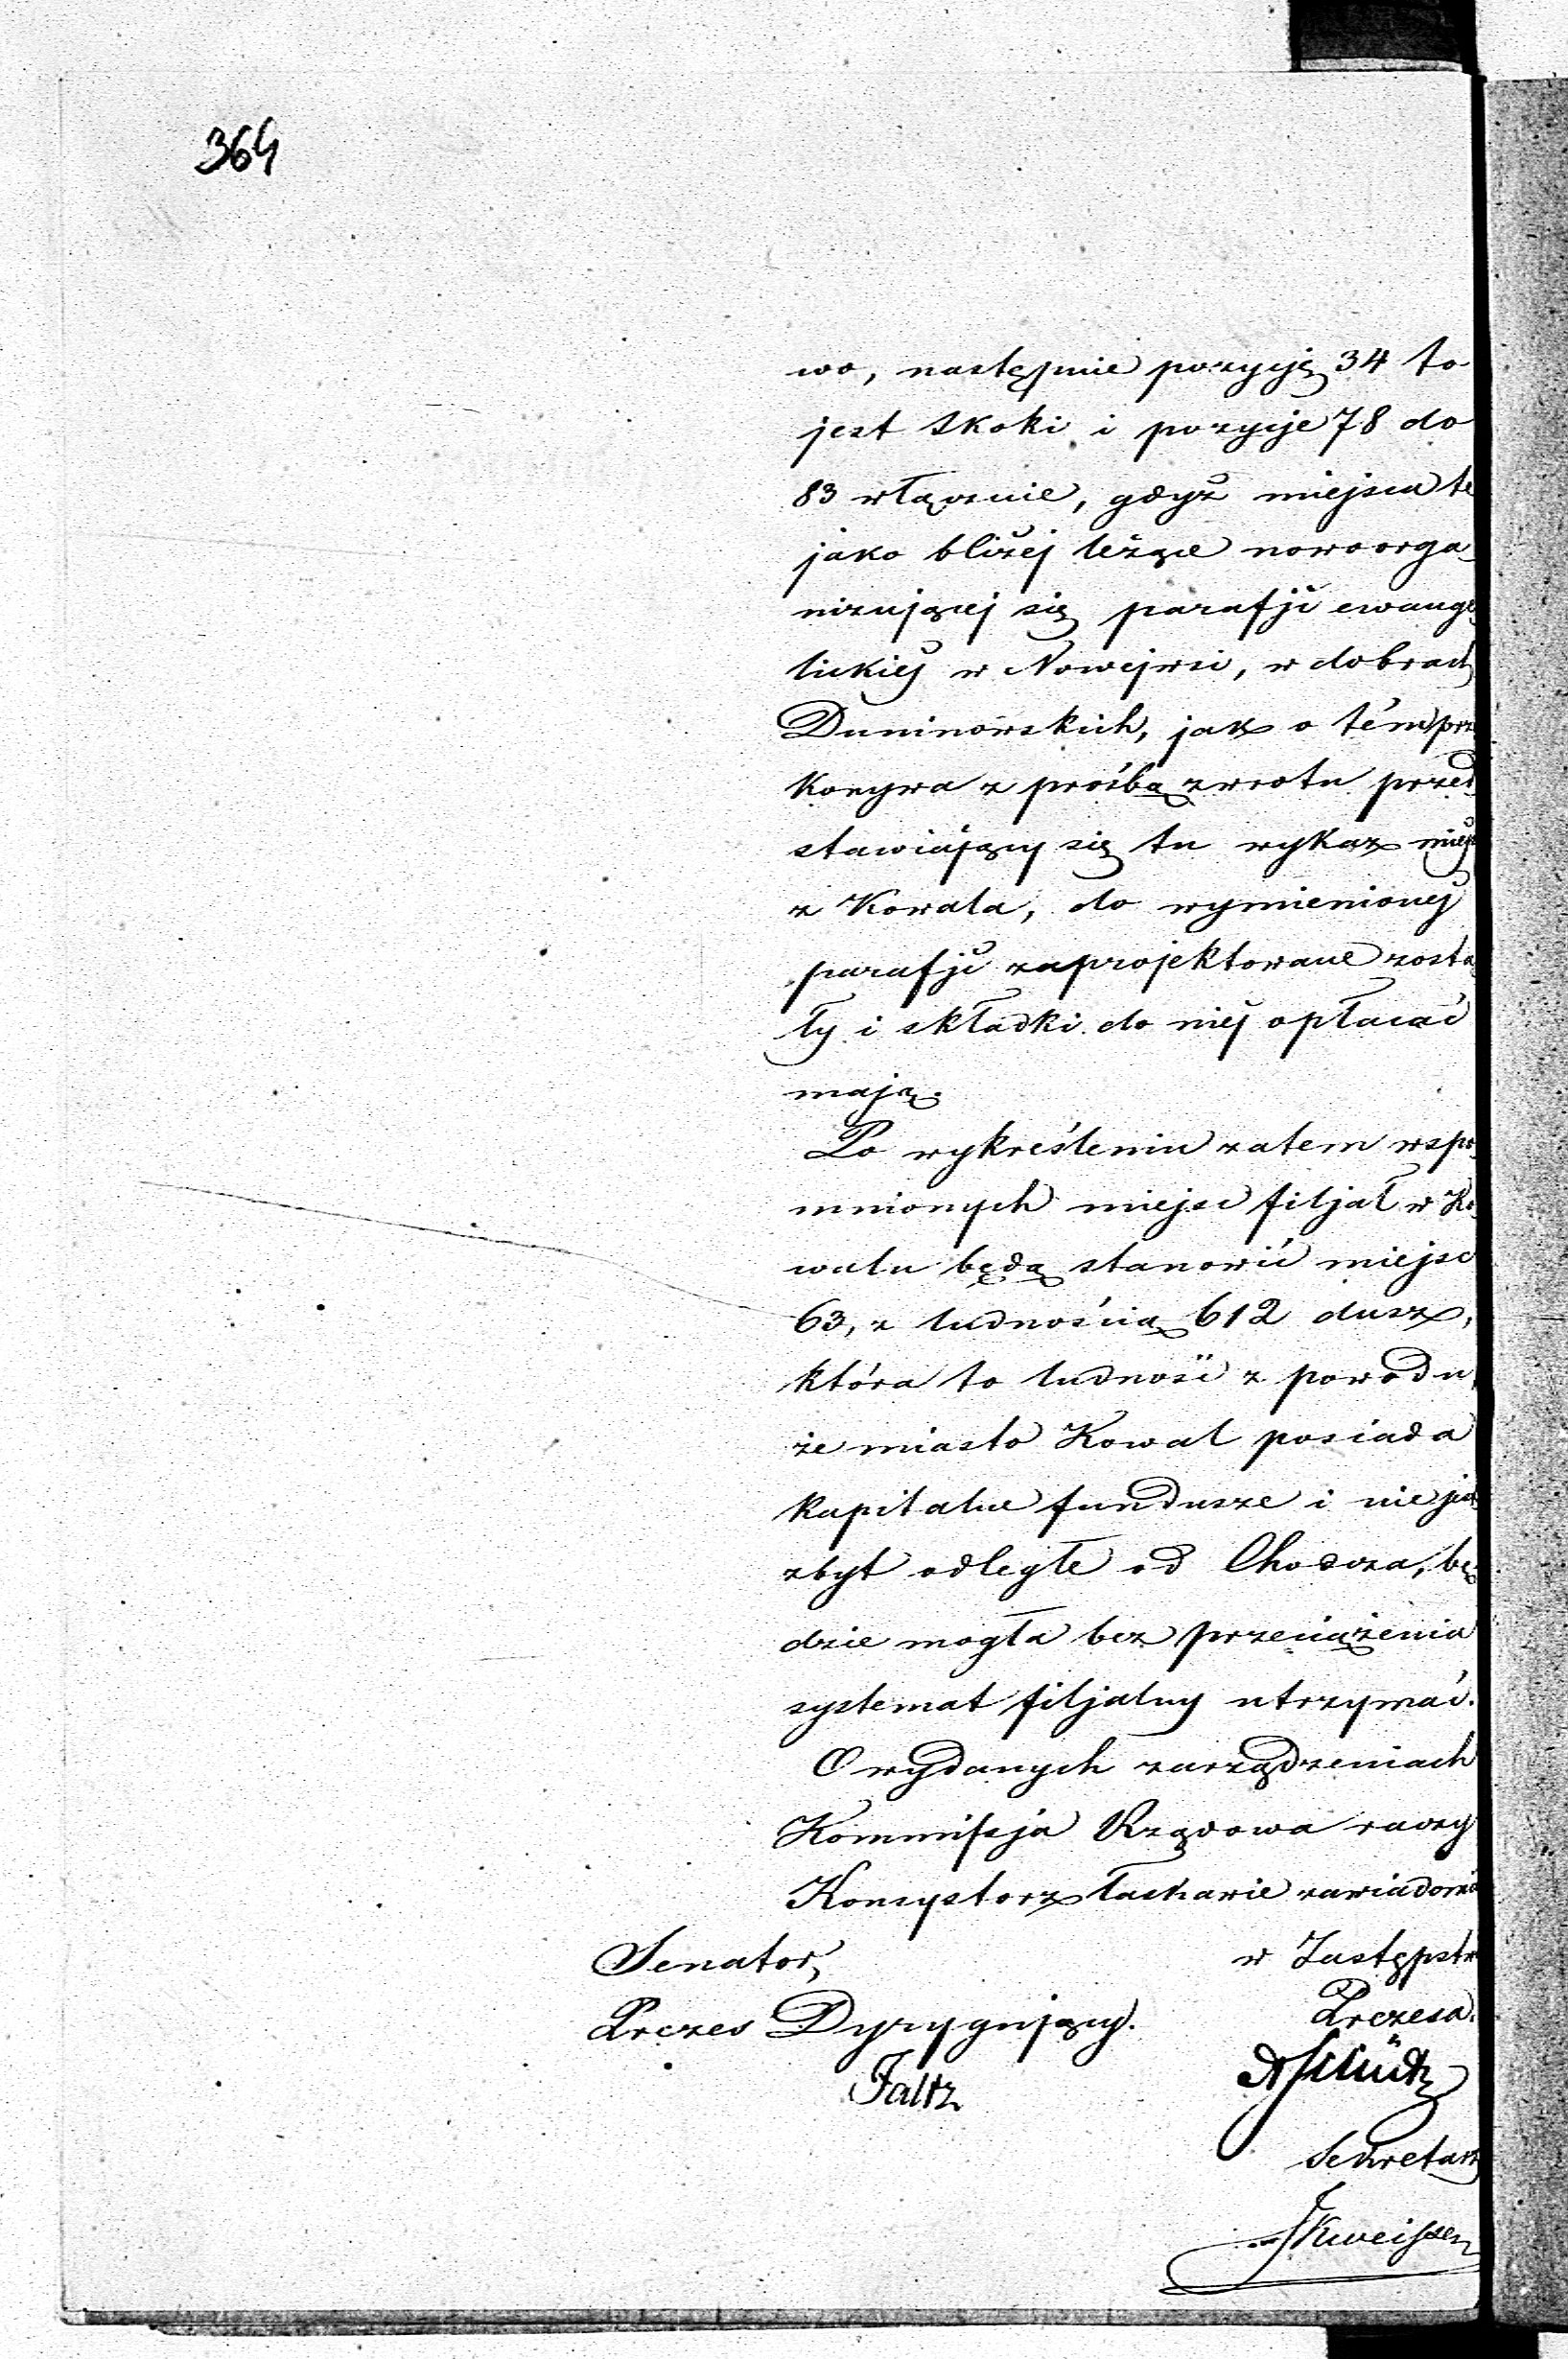 364
wo, następnie pozycję 34 to
jest Skoki i pozycje 78 do
83 włącznie, gdyż miejsca te
jako bliżej leżące noworga-
nizującej się parafji ewange-
lickiej w Nowejwsi, w dobrach
Duninowskich, jak o tém prze
konywa z prośbą zwrotu przed-
stawiający się tu wykaz miejsc
z Kowala, do wymienionej
parafji zaprojektowane zosta-
ły i składki do niéj opłacać
mają.
Po wykreśleniu zatem wspo-
mnionych miejsc filjał w Ko-
walu będą stanowić miejsc
63, z ludnością 612 dusz,
która to ludność z powodu,
że miasto Kowal posiada
kapitalne fundusze i nie jest
zbyt odległe od Chodcza, bę-
dzie mogła bez przeciążenia
systemat filjalny utrzymać.
O wydanych zarządzeniach
Kommissja Rządowa raczy
Konsystorz łaskawie zawiadomić
Senator, w Zastępstwie
Prezes Dyrygujący. Prezesa.
Faltz
Sekretarz